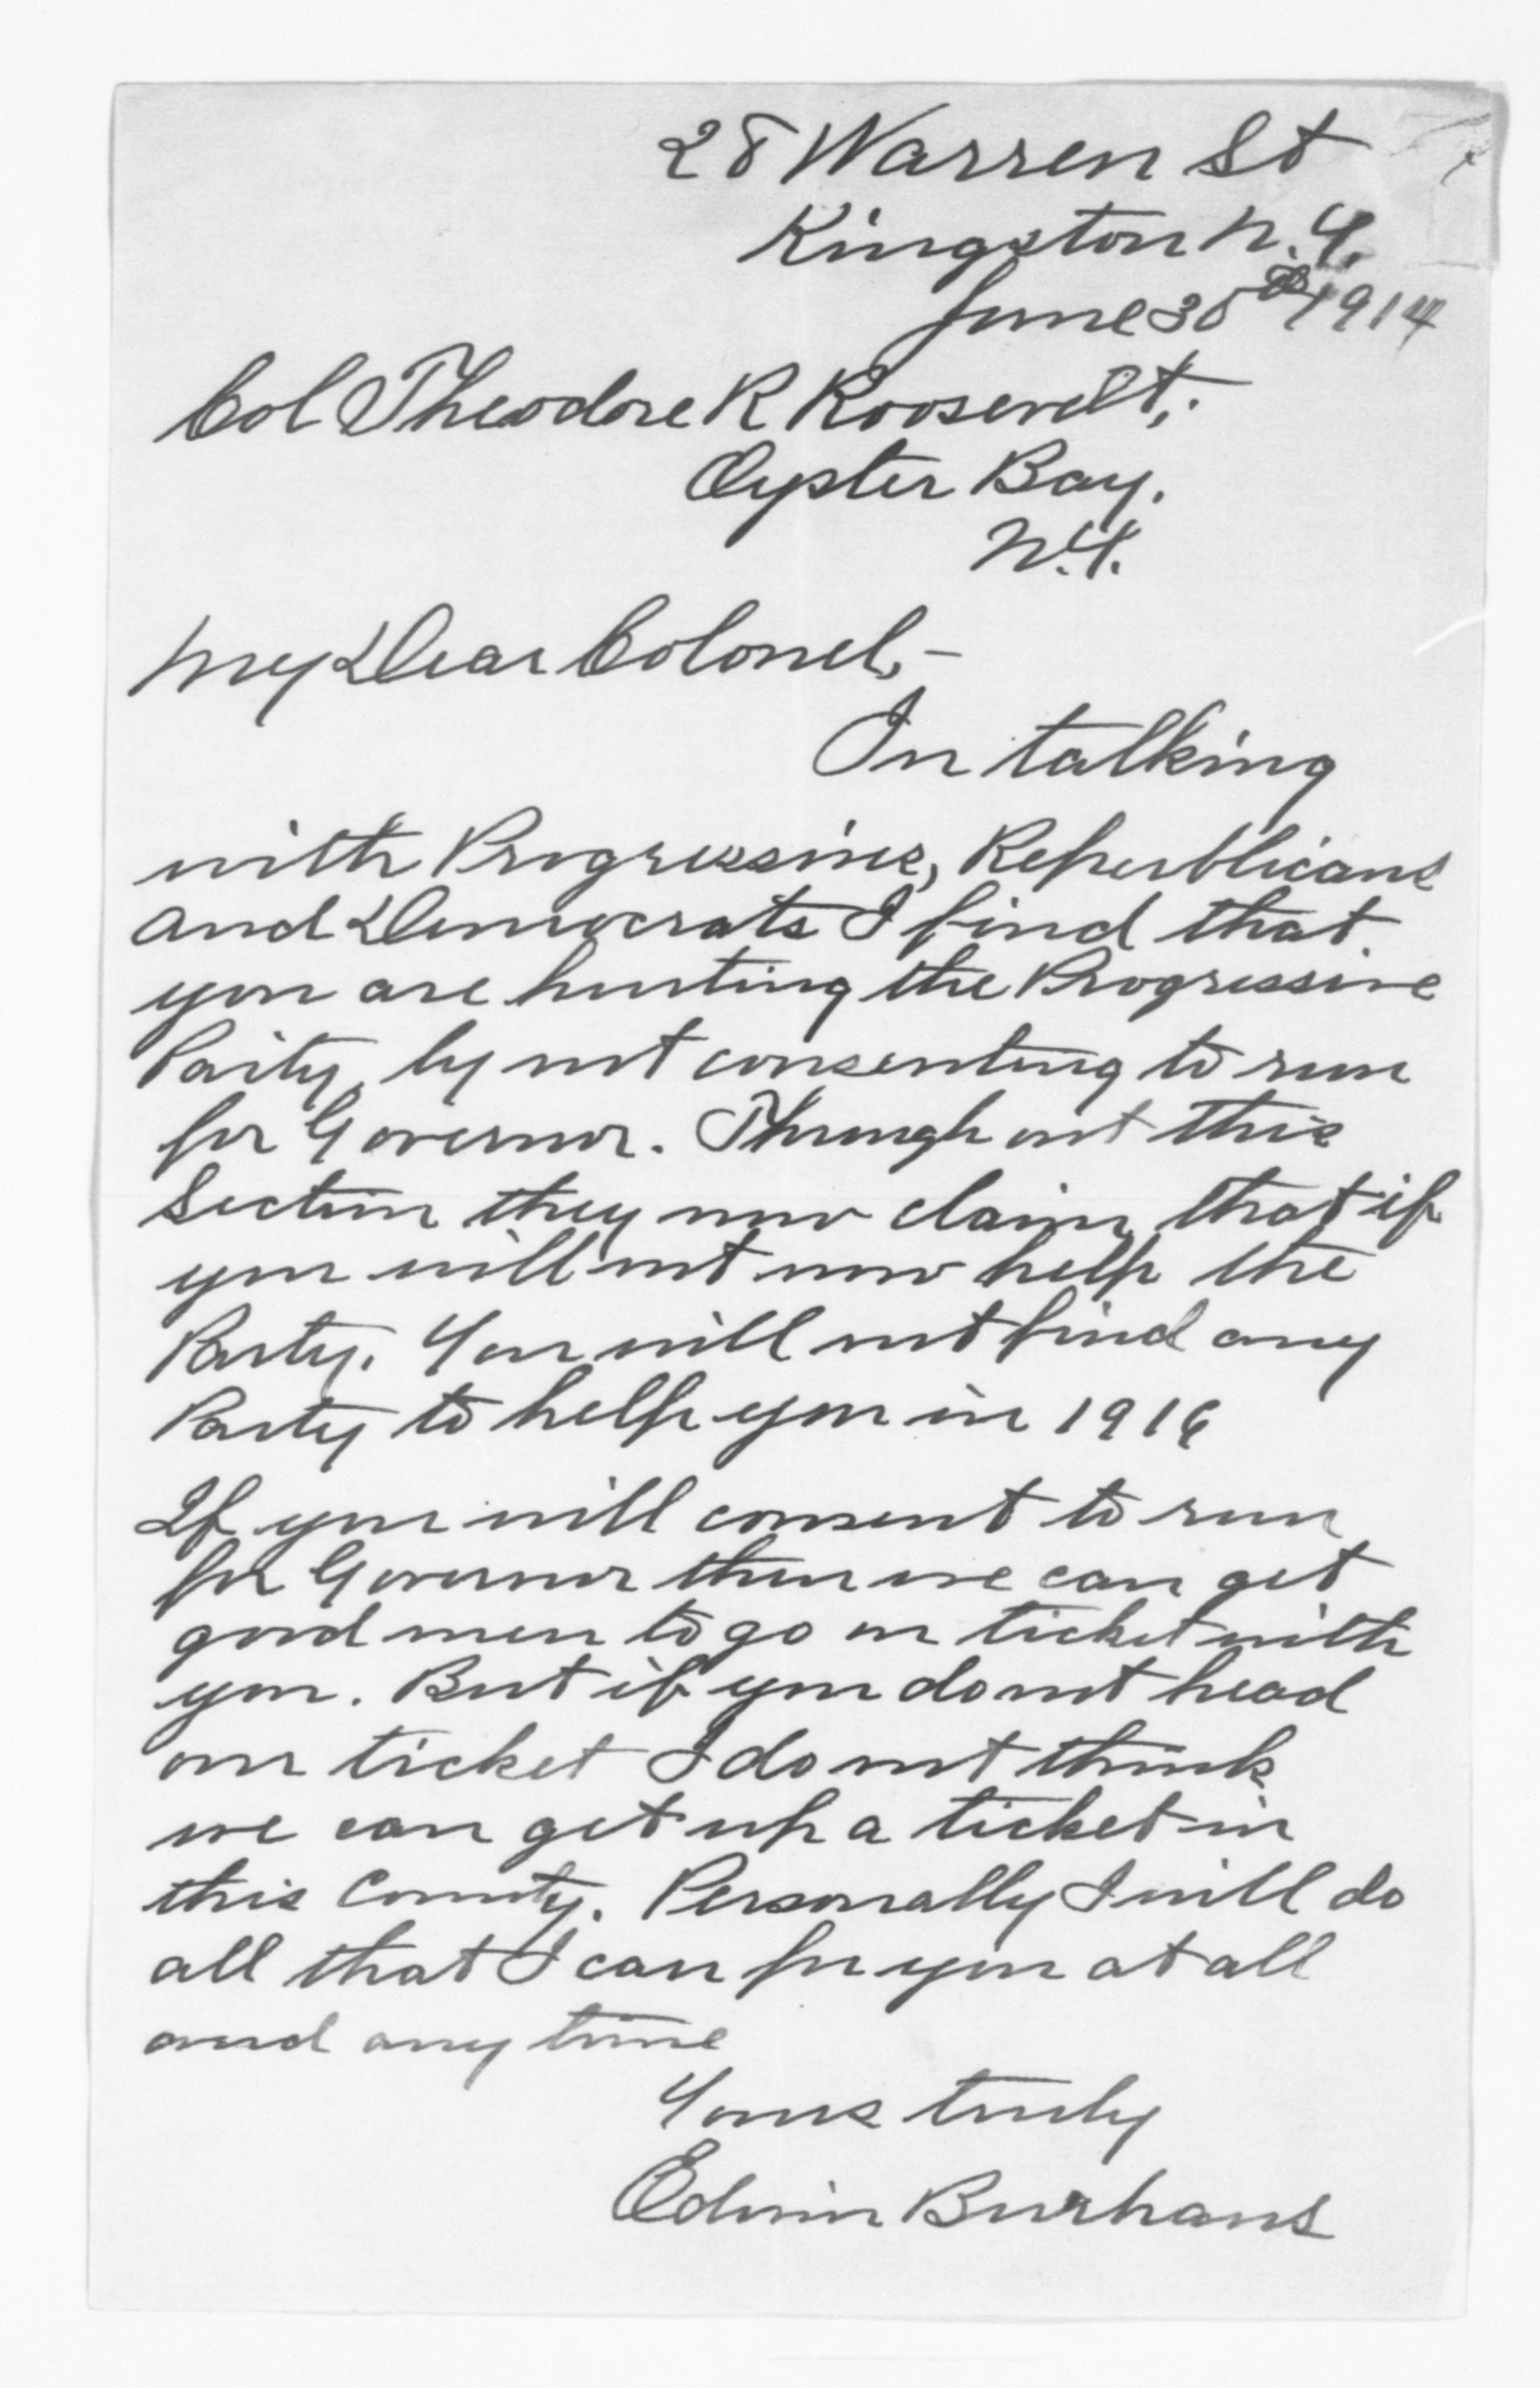 28 Warren St
Kingston N.Y.
June 30th 1914
Col Theodore R Roosevelt,.
Oyster Bay.
N.Y.
My Dear Colonel,-
In talking
with Progressives, Republicans
and Democrats I find that
you are hurting the Progressive
Party, by not consenting to run
for Governor. Through out this
Section they now claim that if
you will not now help the
Party. You will not find any
Party to help you in 1916
If you will consent to run
for Governor then we can get
good men to go on ticket with
you. But if you do not head
our ticket I do not think
we can get up a ticket in
this County. Personally I will do
all that I can for you at all
and any time
Yours truly
Edwin Burhans